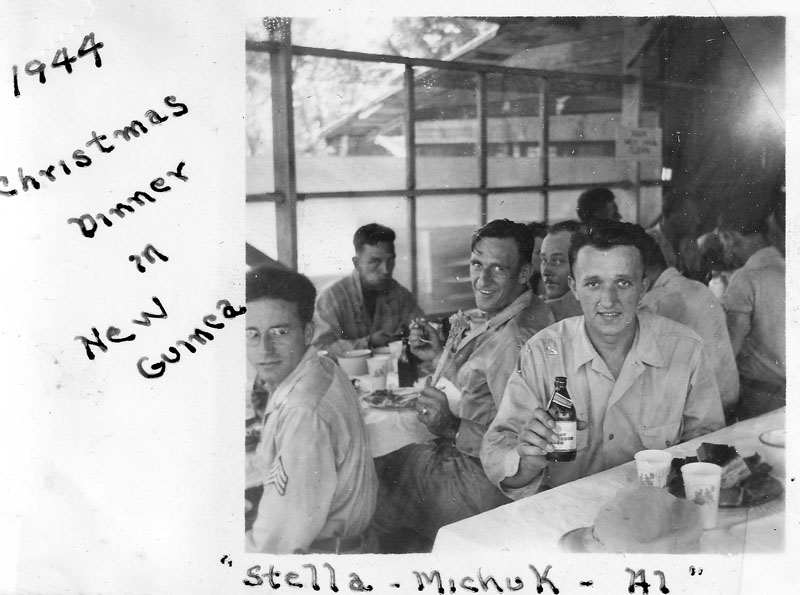 1944
Christmas
Dinner
in
New
Guinea
"Stella - Michuk - Al"